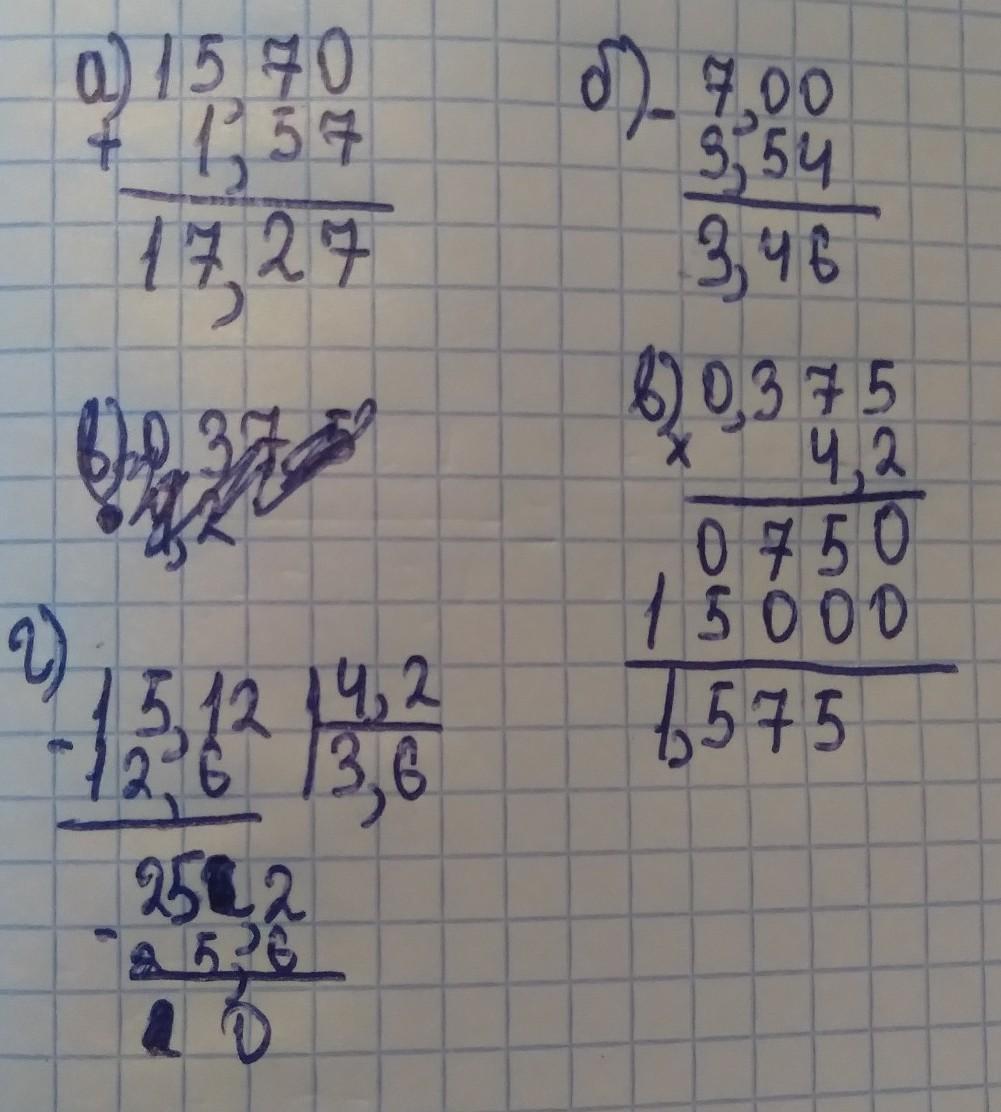 а) 15,70
+ 1,57
17,27
б) - 7,00
3,54
3,46
в) 0,375
4,2
в) 0,375
x 4,2
0750
15000
1,575
г)
- 15,12 | 4,2
12,6 | 3,6
25 2
- 25,6
0